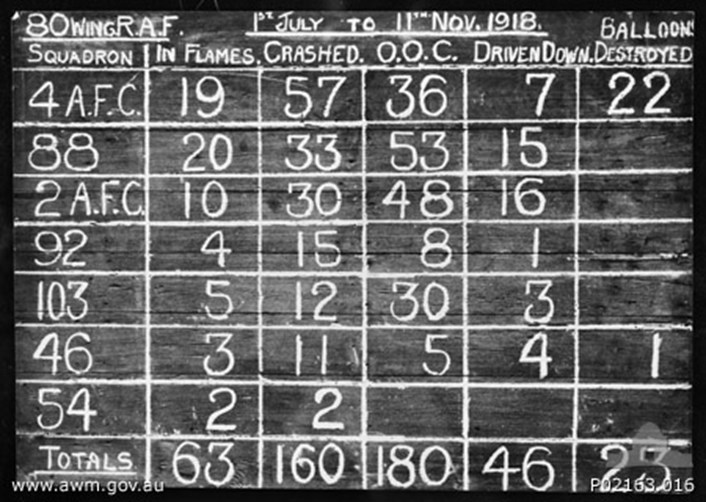 80 WING R.A.F. 1ST JULY TO 11TH NOV. 1918. BALLOONS
SQUADRON IN FLAMES. CRASHED. O.O.C. DRIVEN DOWN. DESTROYED
4 A.F.C. 19 57 36 7 22
88 20 33 53 15
2 A.F.C. 10 30 48 16
92 4 15 8 1
103 5 12 30 3
46 3 11 5 4 1
54 2 2
TOTALS 63 160 180 46 23
www.awm.gov.au P02163.016